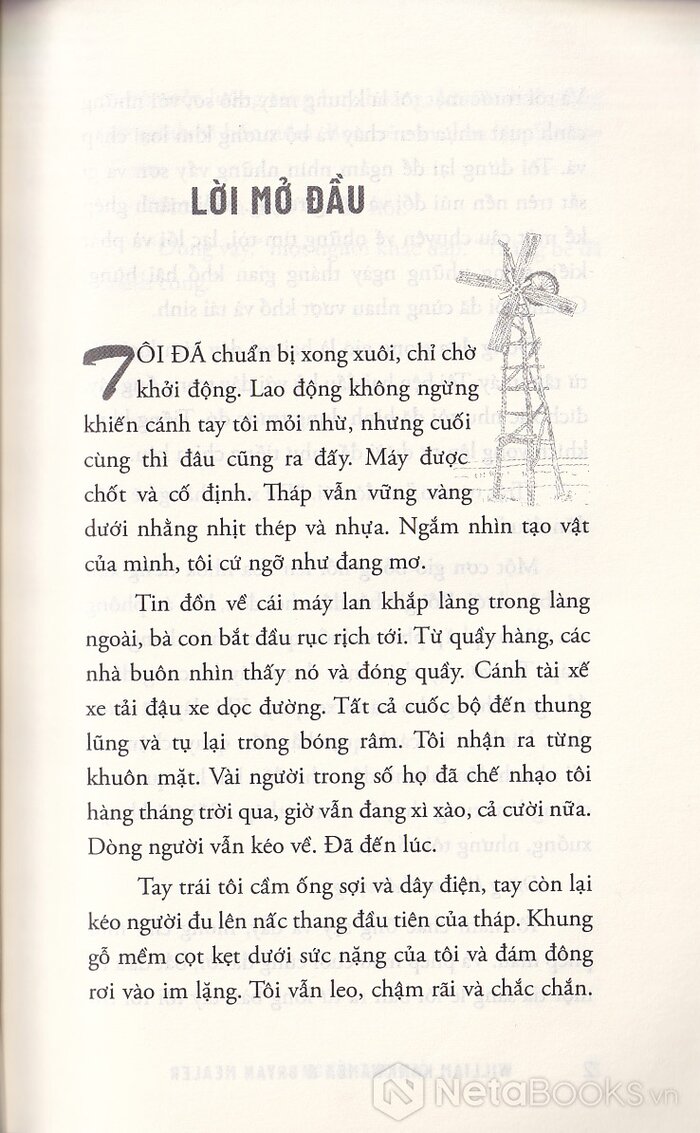 LỜI MỞ ĐẦU
TÔI ĐÃ chuẩn bị xong xuôi, chỉ chờ
khởi động. Lao động không ngừng
khiến cánh tay tôi mỏi nhừ, nhưng cuối
cùng thì đâu cũng ra đấy. Máy được
chốt và cố định. Tháp vẫn vững vàng
dưới nhằng nhịt thép và nhựa. Ngắm nhìn tạo vật
của mình, tôi cứ ngỡ như đang mơ.
Tin đồn về cái máy lan khắp làng trong làng
ngoài, bà con bắt đầu rục rịch tới. Từ quầy hàng, các
nhà buôn nhìn thấy nó và đóng quầy. Cánh tài xế
xe tải đậu xe dọc đường. Tất cả cuốc bộ đến thung
lũng và tụ lại trong bóng râm. Tôi nhận ra từng
khuôn mặt. Vài người trong số họ đã chế nhạo tôi
hàng tháng trời qua, giờ vẫn đang xì xào, cả cười nữa.
Dòng người vẫn kéo về. Đã đến lúc.
Tay trái tôi cầm ống sợi và dây điện, tay còn lại
kéo người đu lên nấc thang đầu tiên của tháp. Khung
gỗ mềm cọt kẹt dưới sức nặng của tôi và đám đông
rơi vào im lặng. Tôi vẫn leo, chậm rãi và chắc chắn.
NetaBooks.vn